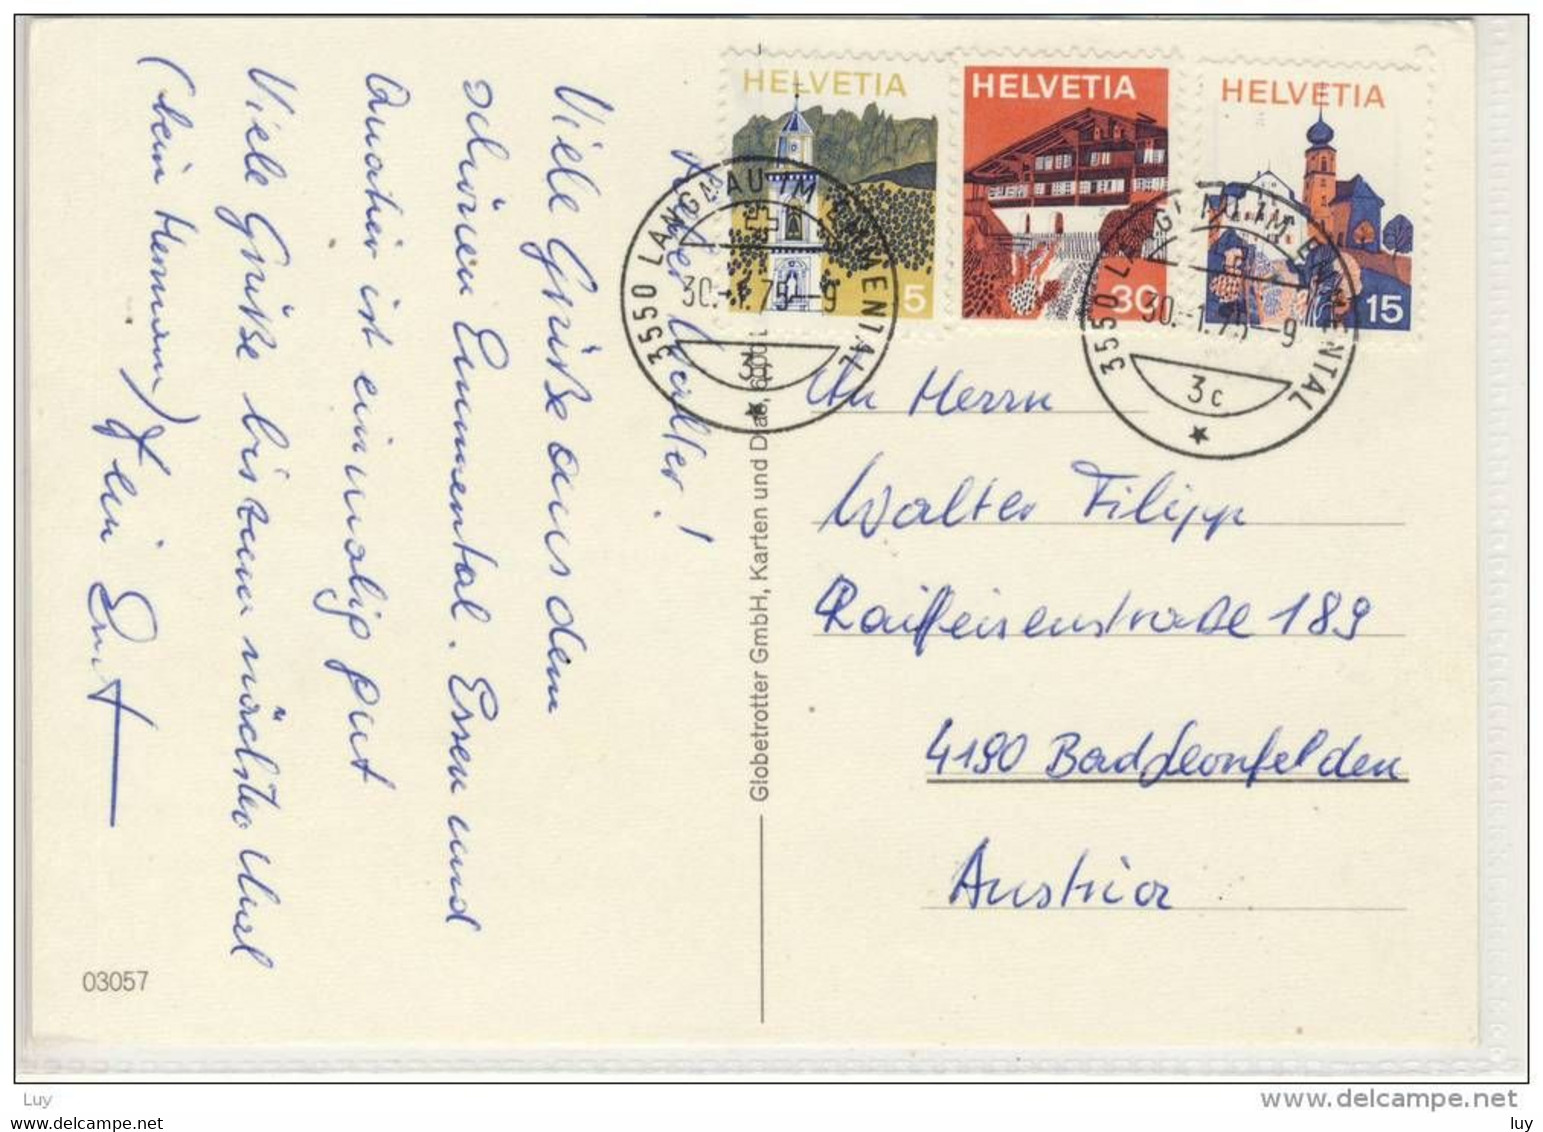 Lieber Walter!
Viele Grüße aus dem
schönen Emmental. Essen und
Quatier ist einmalig gut
Viele Grüße bis zum nächsten Mal
(beim Hermann) Dein Ernst
03057
Globetrotter GmbH, Karten und Dias,
HELVETIA
5
HELVETIA
30
HELVETIA
15
3550 LANGNAU IM EMMENTAL
30.-1.75-9
3550 LANGNAU IM EMMENTAL
30.-1.75-9
3c
An Herrn
Walter Filipp
Raiffeisenstraße 189
4190 Bad Leonfelden
Austria
Luy
www.delcampe.net
luy
www.delcampe.net